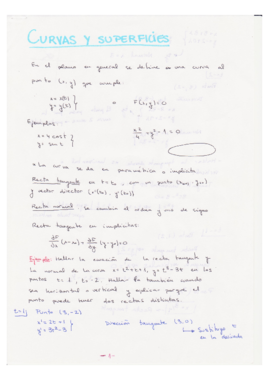 CURVAS Y SUPERFICIES
En el plano en general se define una curva al
punto (x,y) que cumple
x = x(t)
y = y(t) o F(x,y)=0
Ejemplos
x = 4 cos t
y = sin t
La curva se da en paramétrica o implícita.
Recta tangente en t = t₀, con un punto
y vector director (x'(t₀), y'(t₀))
Recta normal: Se cambia el orden y uno de signo
Recta tangente en implícitas
Ejemplo: Hallar la ecuación de la recta tangente y
la normal de la curva x = t²+t+1, y = t³-3t en los
puntos t=1, t=-2. Hallar también cuando
sea horizontal o vertical y explicar porque el
punto puede tener dos rectas distintas.
t=1 Punto (3,-2)
Dirección tangente (3,0)
Sustituyo
en la derivada